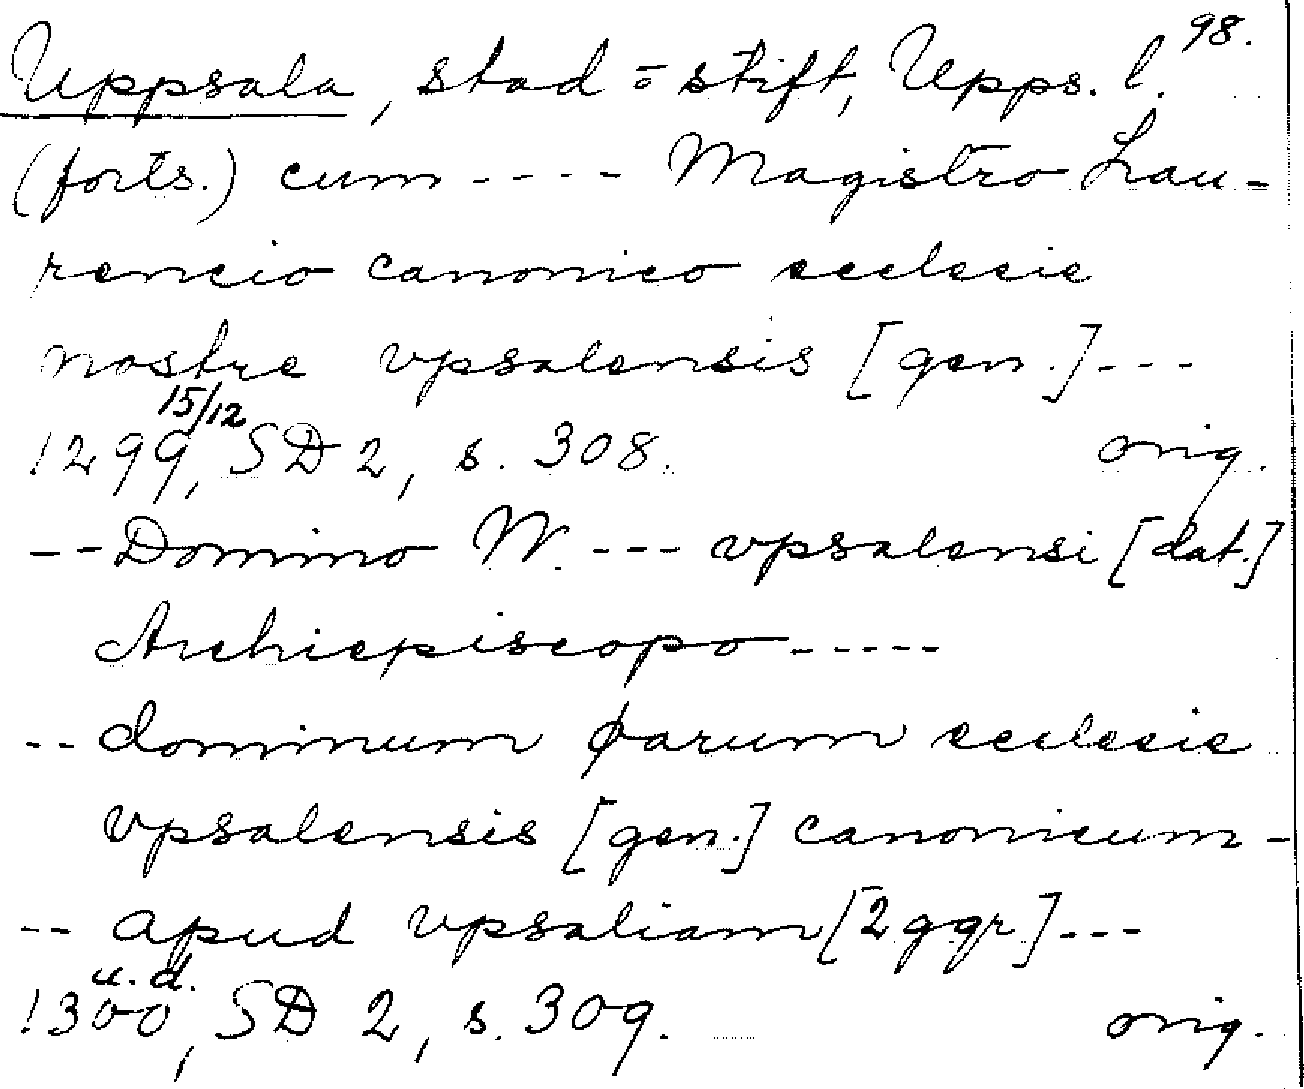 98.
Uppsala, stad o stift, Upps. l.
(forts.) cum ---- Magistro Lau-
rencio canonico ecclesie
nostre vpsalensis [gen.] ---
15/12
1299, SD 2, s. 308. orig.
-- Domino W. --- vpsalensi [dat.]
Archiepiscopo -----
-- dominum karum ecclesie
vpsalensis [gen.] canonicum -
-- apud vpsaliam [2 ggr] ---
u. d.
1300, SD 2, s. 309. orig.